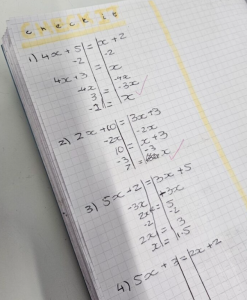 check is
1) 4x + 5 = x + 2
-2 -2
4x + 3 = x
-4x -4x
3 = -3x
-1 = x
2) 2x + 10 = 3x + 3
-2x -2x
10 = x + 3
-3 -3
7 = x
3) 5x + 2 = 3x + 5
-3x -3x
2x = 5
-2 -2
2x = 3
x = 1.5
4) 5x + 3 = 2x + 2